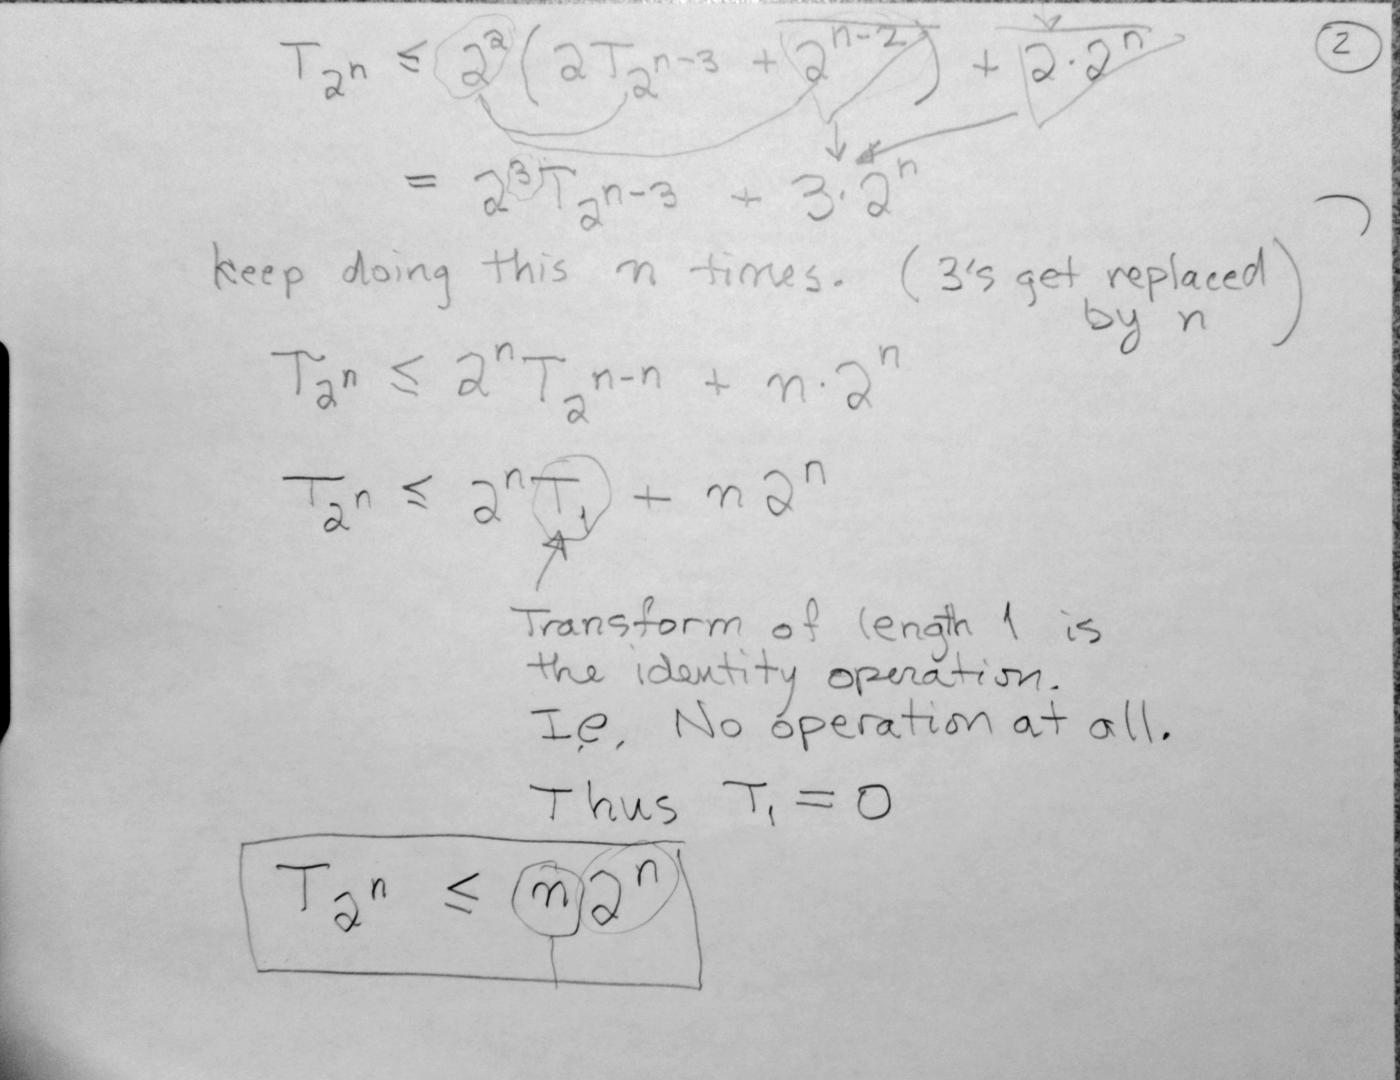 ②
T_{2^n} ≤ 2^2 (2T_{2^{n-3}} + 2^{n-2}) + 2·2^n
= 2^3 T_{2^{n-3}} + 3·2^n
keep doing this n times. (3's get replaced
by n)
T_{2^n} ≤ 2^n T_{2^{n-n}} + n·2^n
T_{2^n} ≤ 2^n T_1 + n 2^n
Transform of length 1 is
the identity operation.
I.e, No operation at all.
Thus T_1 = 0
T_{2^n} ≤ n 2^n